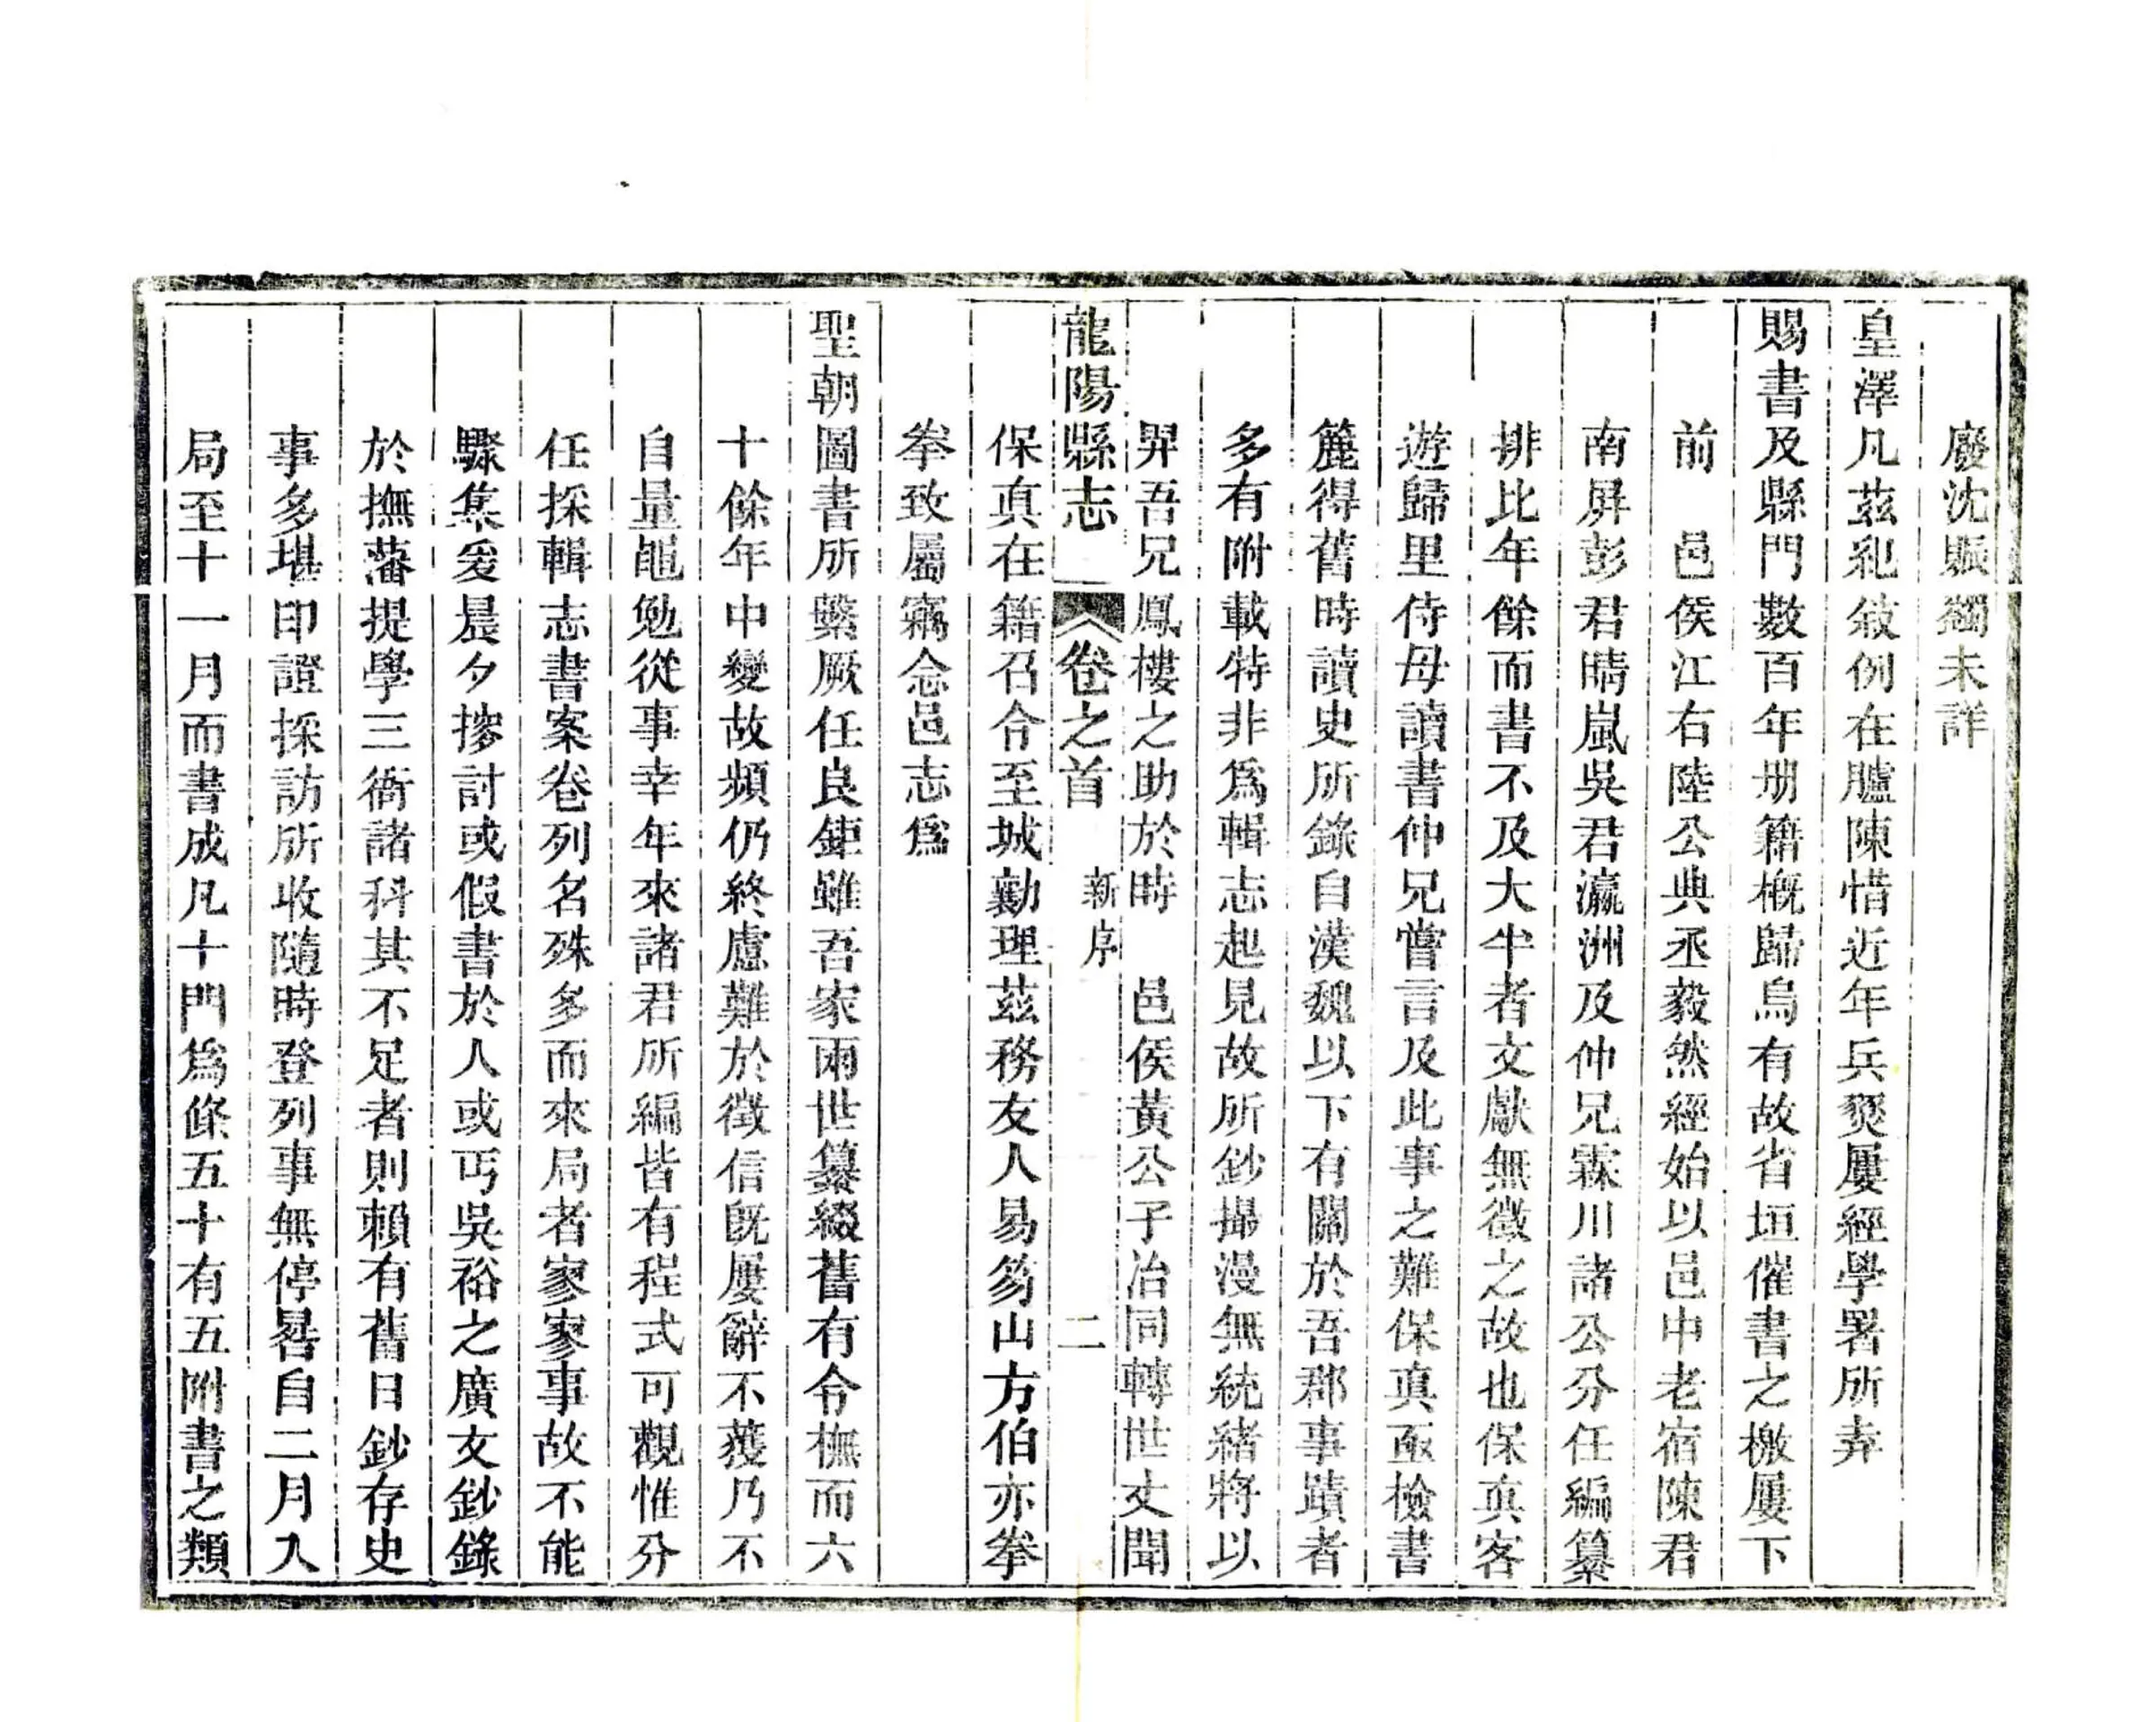 廢沈賑蠲未詳
皇澤凡茲祀敘例在臚陳惜近年兵燹屢經學署所弆
賜書及縣門數百年册籍槪歸烏有故省垣催書之檄屢下
前 邑侯江右陸公典丞毅然經始以邑中老宿陳君
南屏彭君晴嵐吳君瀛洲及仲兄霖川諸公分任編纂
排比年餘而書不及大半者文獻無徵之故也保真客
遊歸里侍母讀書仲兄嘗言及此事之難保真亟檢書
簏得舊時讀史所錄自漢魏以下有關於吾郡事蹟者
多有附載特非爲輯志起見故所鈔撮漫無統緒將以
畀吾兄鳳樓之助於時 邑侯黃公子冶同轉世丈聞
龍陽縣志 卷之首 新序 二
保真在籍召令至城勷理茲務友人易笏山方伯亦拳
拳致屬竊念邑志爲
聖朝圖書所繫厥任良鉅雖吾家兩世纂綴舊有令橅而六
十餘年中變故頻仍終慮難於徵信旣屢辭不獲乃不
自量黽勉從事幸年來諸君所編皆有程式可觀惟分
任採輯志書案卷列名殊多而來局者寥寥事故不能
驟集爰晨夕摉討或假書於人或丐吳裕之廣文鈔錄
於撫藩提學三衙諸科其不足者則賴有舊日鈔存史
事多堪印證採訪所收隨時登列事無停晷自二月入
局至十一月而書成凡十門爲條五十有五附書之類